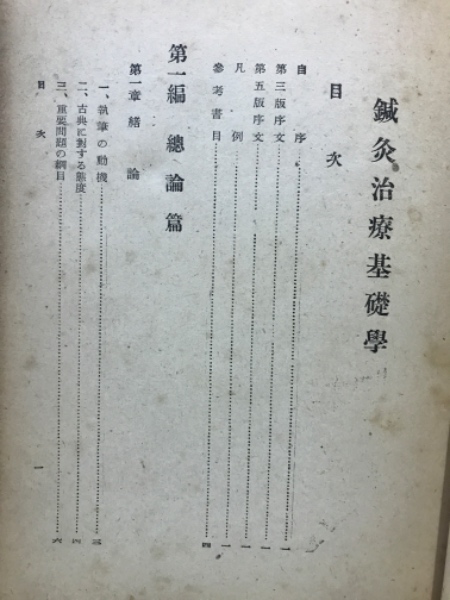 鍼灸治療基礎學
目次
自序……一
第三版序文……一
第五版序文……一
凡例……一
參考書目……四
第一編 總論篇
第一章 緒論
一、執筆の動機……三
二、古典に對する態度……四
三、重要問題の綱目……六
目次 一